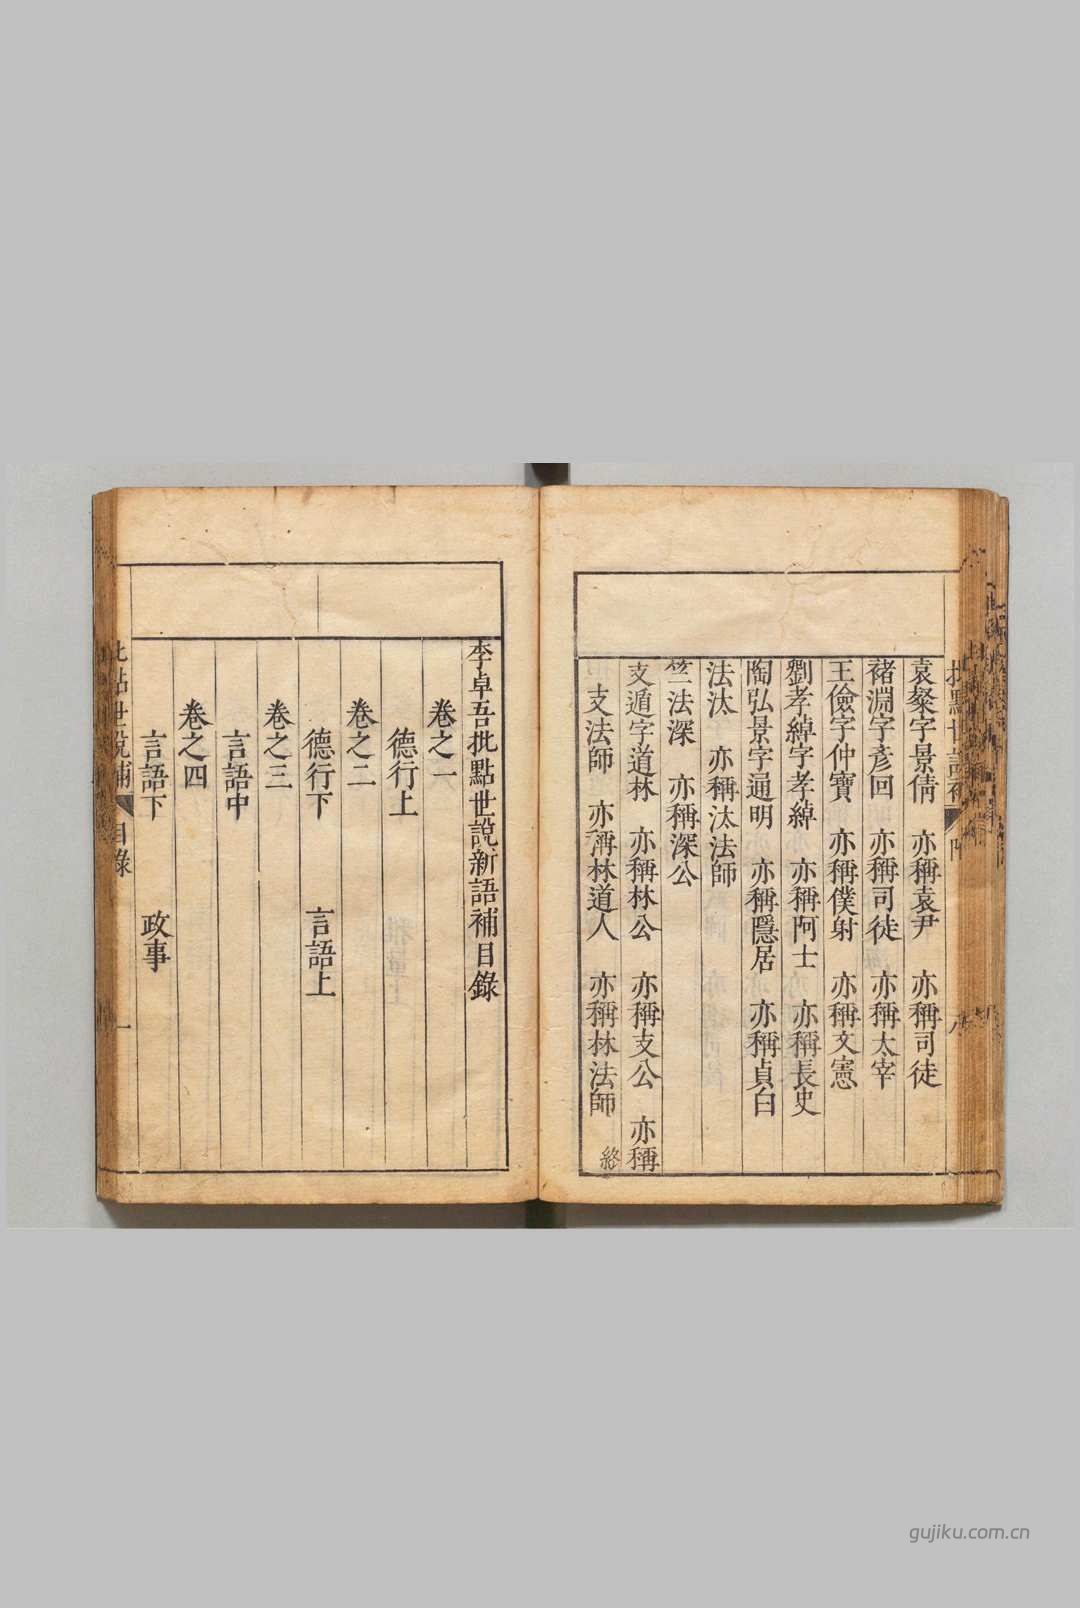 袁粲字景倩 亦稱袁尹 亦稱司徒
褚淵字彥回 亦稱司徒 亦稱太宰
王儉字仲寶 亦稱僕射 亦稱文憲
劉孝綽字孝綽 亦稱阿士 亦稱長史
陶弘景字通明 亦稱隱居 亦稱貞白
法汰 亦稱汰法師
竺法深 亦稱深公
支遁字道林 亦稱林公 亦稱支公 亦稱
支法師 亦稱林道人 亦稱林法師 終
李卓吾批點世說新語補目錄
卷之一
德行上
卷之二
德行下 言語上
卷之三
言語中
卷之四
言語下 政事
批點世說補 目錄 一
gujiku.com.cn